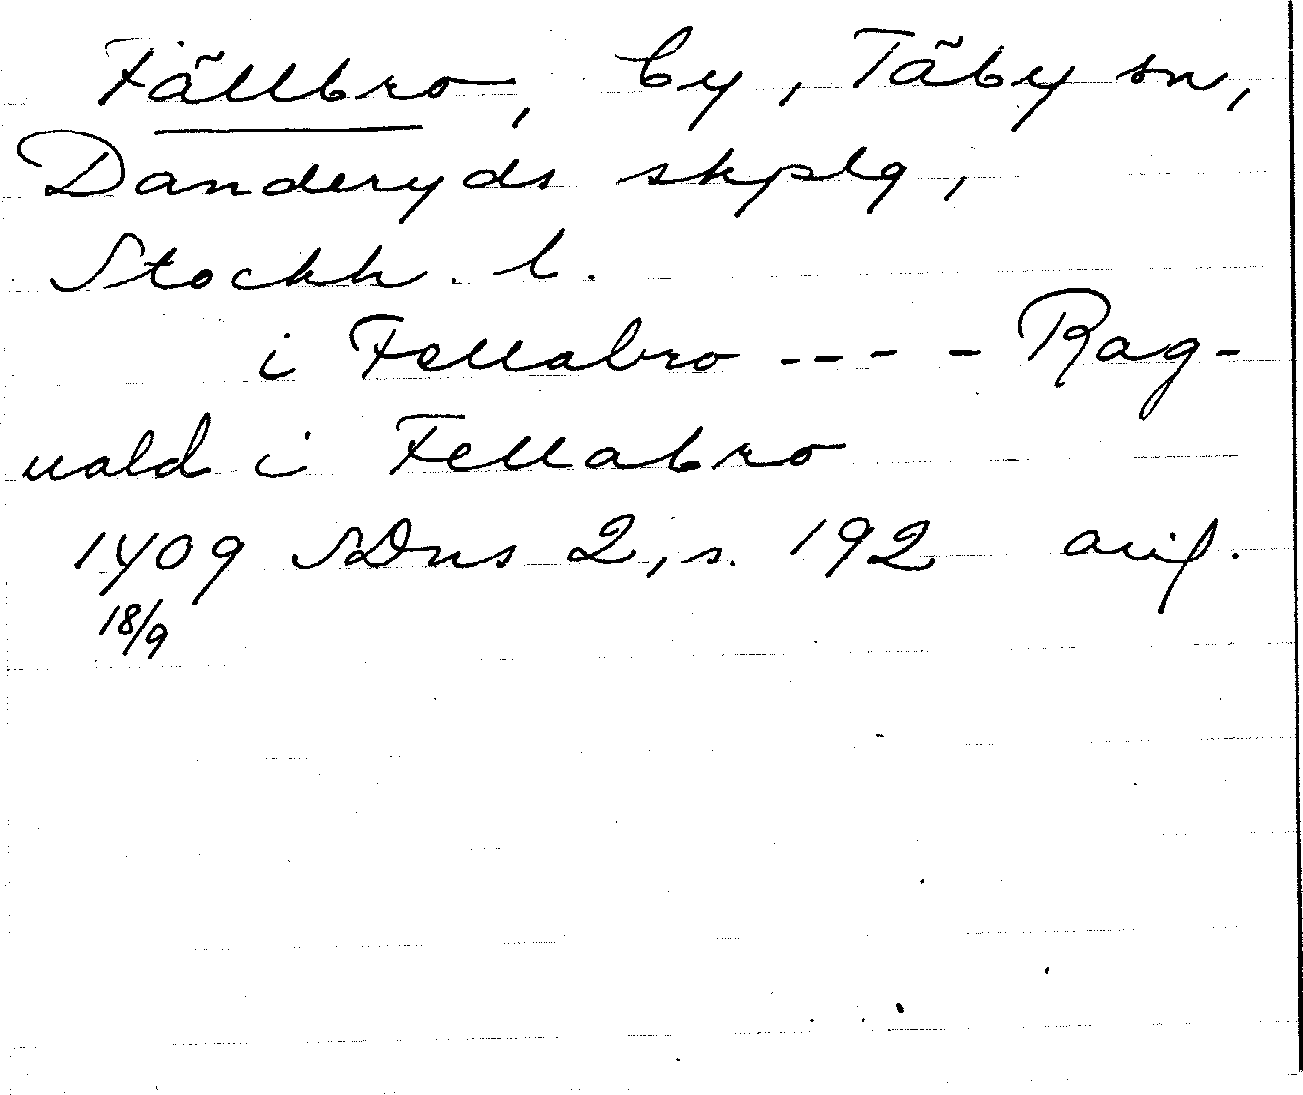 Fällbro, by, Täby sn,
Danderyds skplg,
Stockh. l.
i Fellabro ---- Rag-
uald i Fellabro
1409 SDns 2, s. 192 avs.
18/9